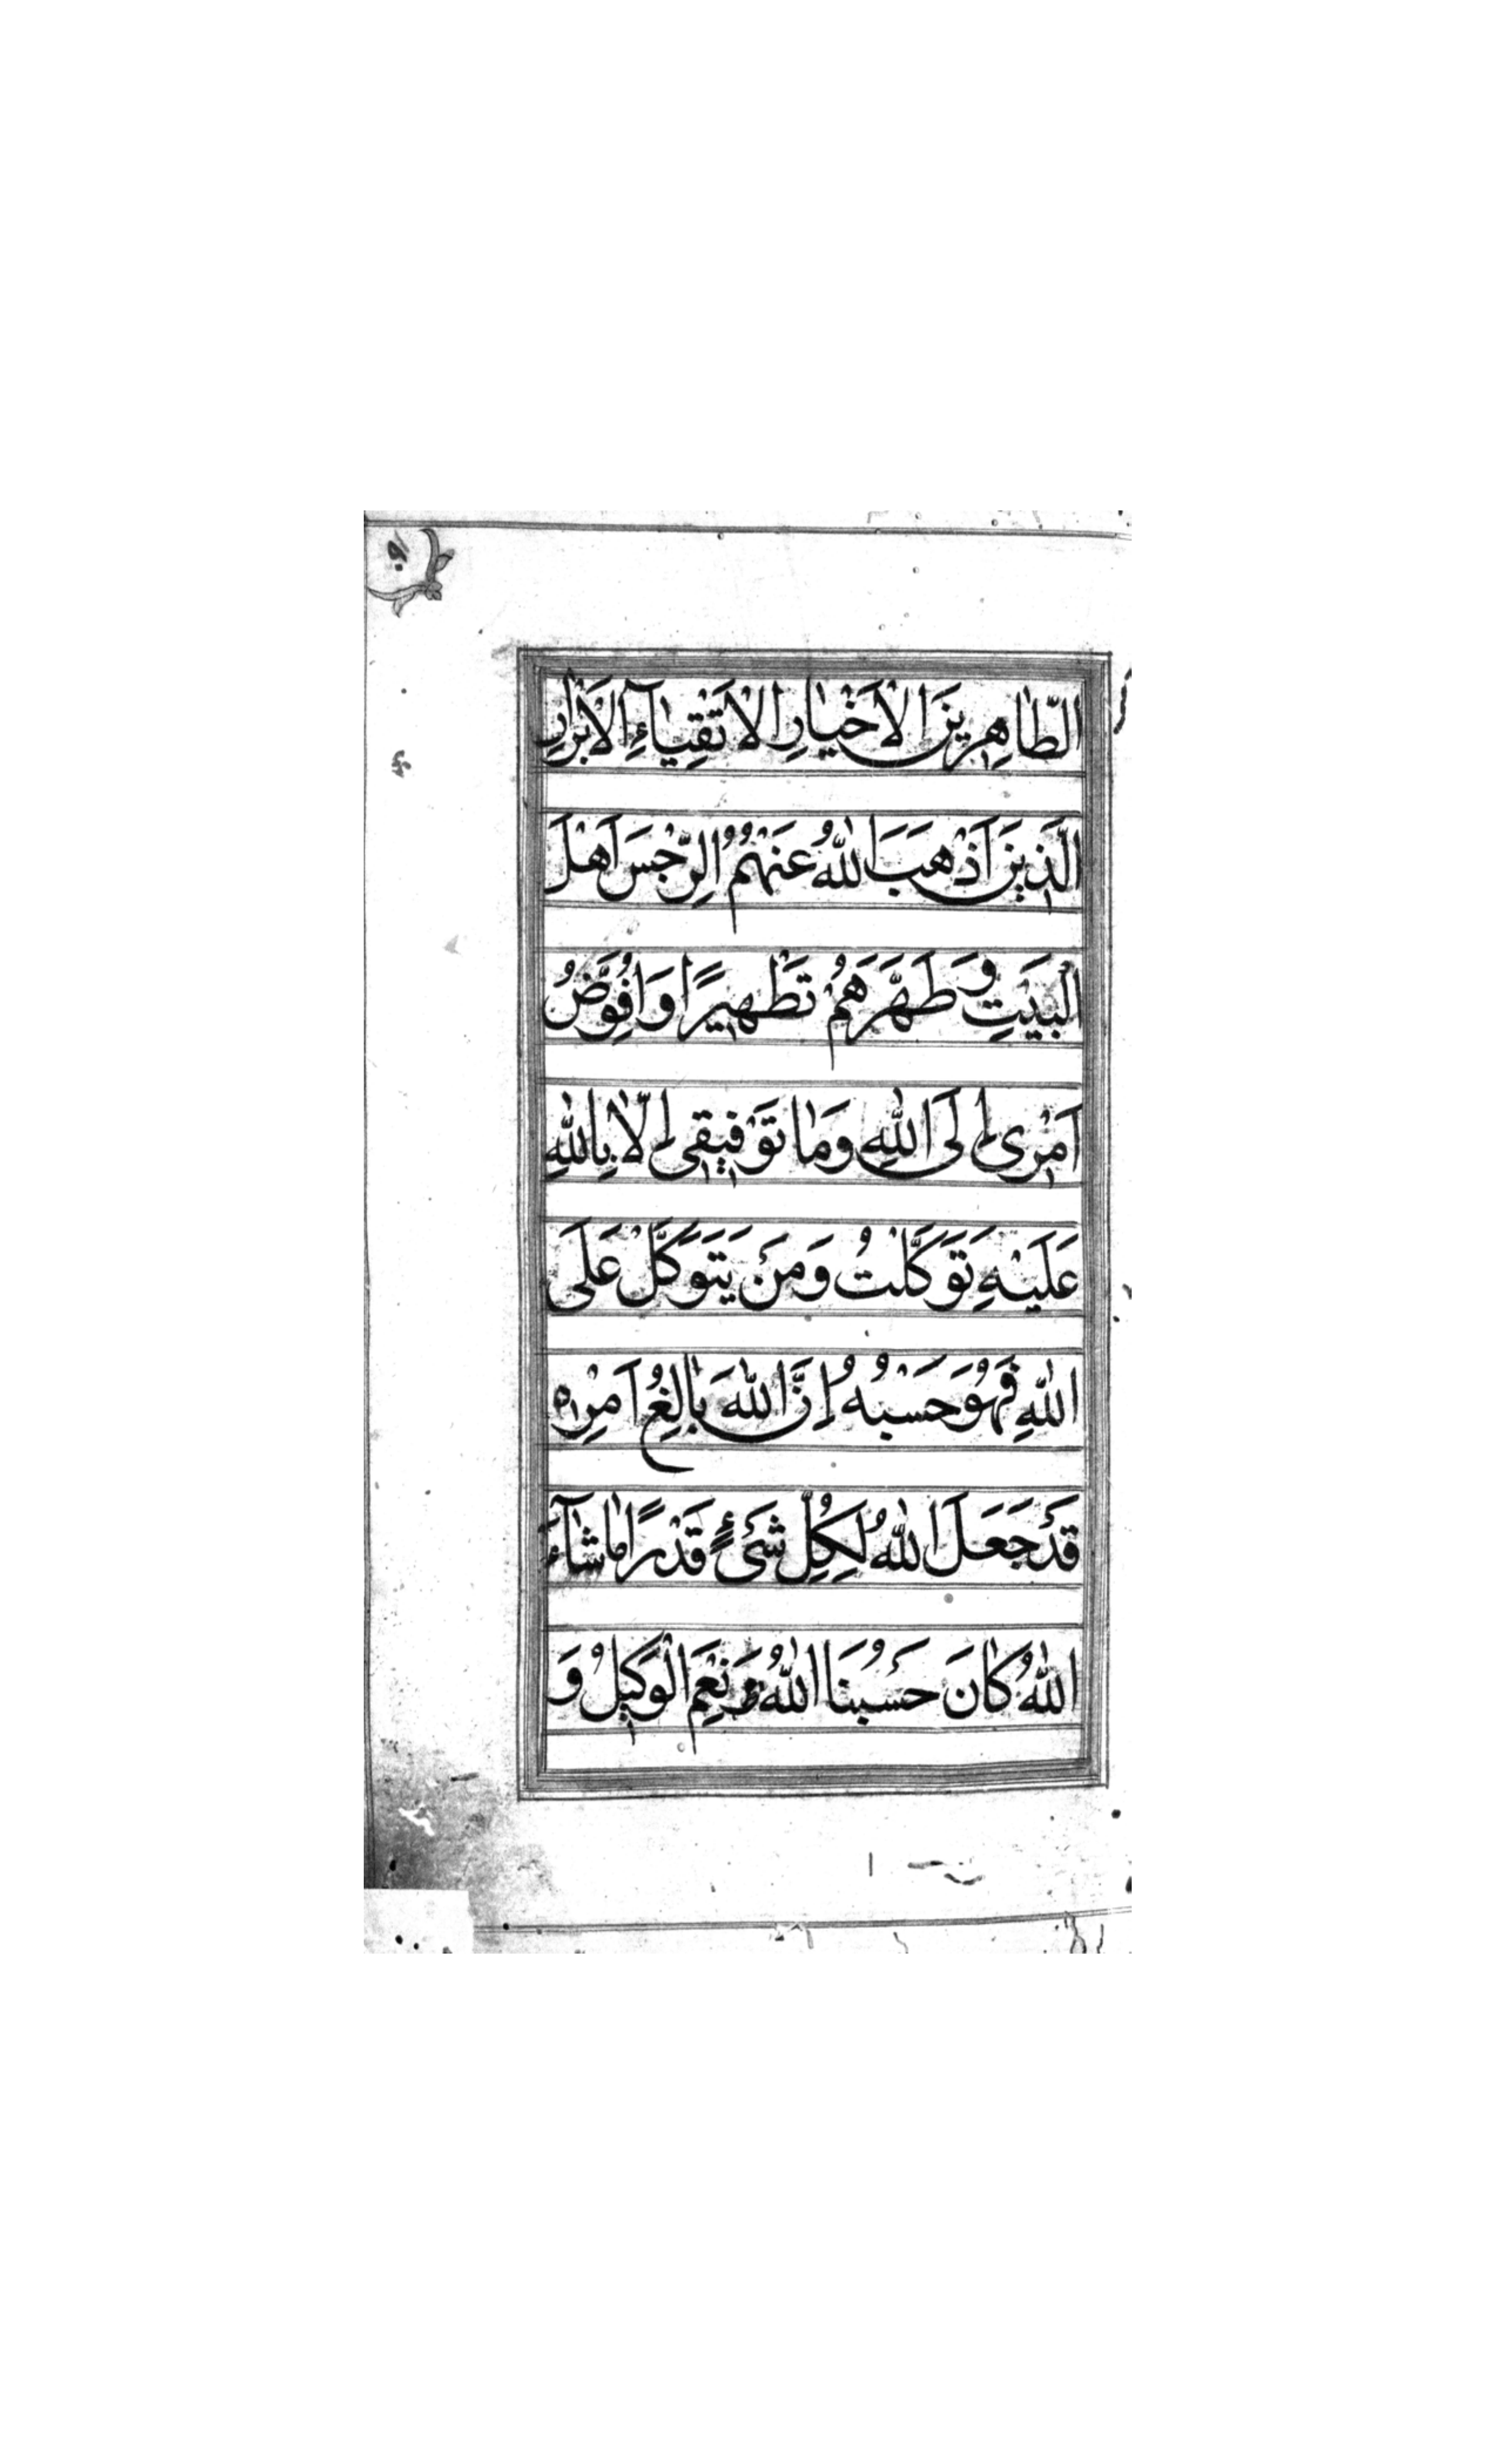 الطّاهِرينَ الْاَخْيارِ الْاَتْقِيآءِ الْاَبْرارِ
الَّذينَ اَذْهَبَ اللّٰهُ عَنْهُمُ الرِّجْسَ اَهْلَ
الْبَيْتِ وَ طَهَّرَهُمْ تَطْهيرًا وَ اُفَوِّضُ
اَمْرى اِلَى اللّٰهِ وَمٰا تَوْفيقى اِلّا بِاللّٰهِ
عَلَيْهِ تَوَكَّلْتُ وَمَنْ يَتَوَكَّلْ عَلَى
اللّٰهِ فَهُوَ حَسْبُهُ اِنَّ اللّٰهَ بٰالِغُ اَمْرِه
قَدْ جَعَلَ اللّٰهُ لِكُلِّ شَىْءٍ قَدْرًا مٰا شٰآءَ
اللّٰهُ كٰانَ حَسْبُنَا اللّٰهُ وَ نِعْمَ الْوَكيلُ وَ